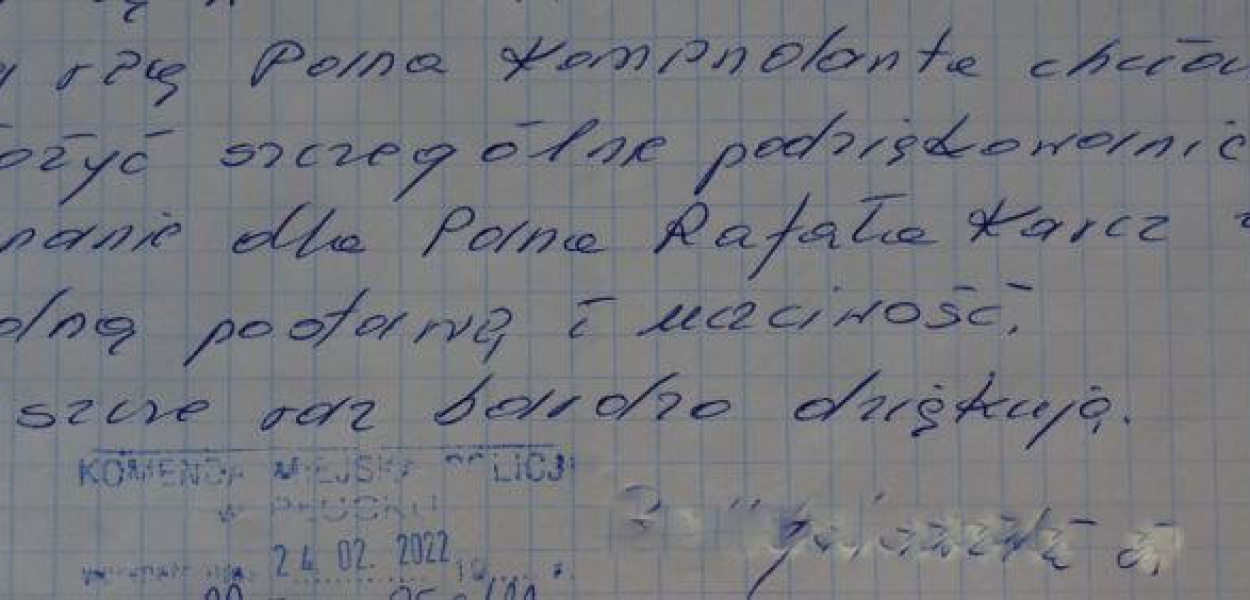 ręcę Pana Komendanta chciał
ożyć szczególne podziękowanie
nanie dla Pana Rafała Karcz
dną postawę i uczciwość.
szcze raz bardzo dziękuję.
KOMENDA MIEJSKA POLICJI
w PŁOCKU
24. 02. 2022